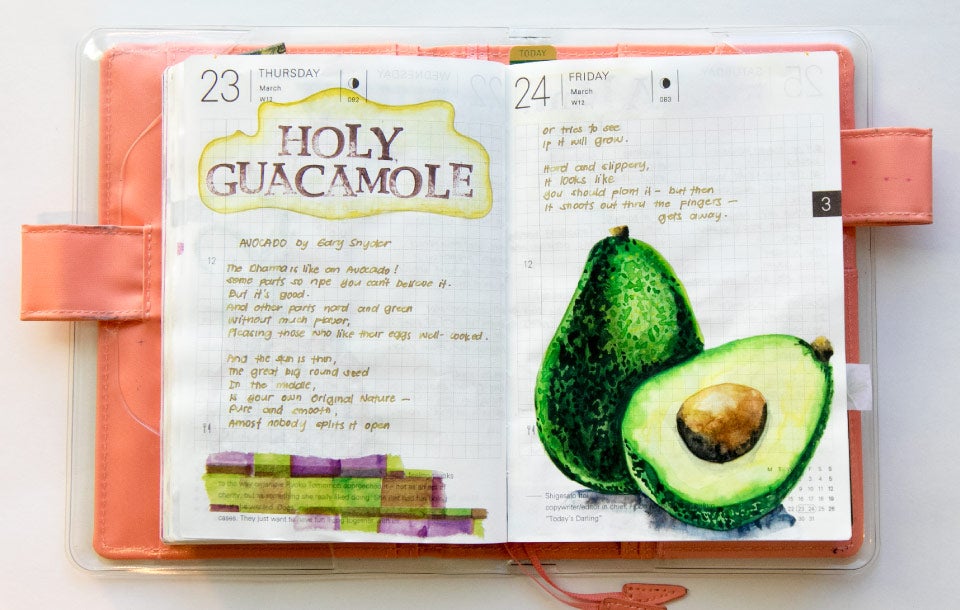 23
THURSDAY
March
W12
082
HOLY
GUACAMOLE
AVOCADO by Gary Snyder
The Dharma is like an Avocado!
Some parts so ripe you can't believe it.
But it's good.
And other parts hard and green
Without much flavor,
Pleasing those who like their eggs well-cooked.
And the skin is thin,
The great big round seed
In the middle,
Is your own Original Nature —
Pure and smooth,
Amost nobody splits it open
12
cases. They just want to have fun living together
TODAY
24
FRIDAY
March
W12
083
or tries to see
if it will grow.
Hard and slippery,
It looks like
you should plant it – but then
it shoots out thru the fingers —
gets away.
3
12
Shigesato Itoi
copywriter/editor in chief,
"Today's Darling"